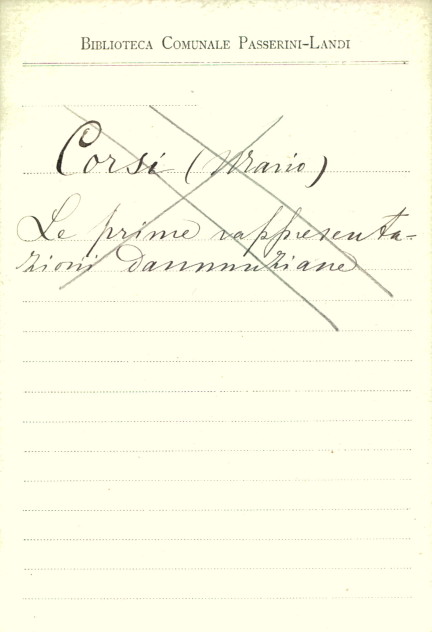 Biblioteca Comunale Passerini-Landi
Corsi (Mario)
Le prime rappresenta-
zioni dannunziane